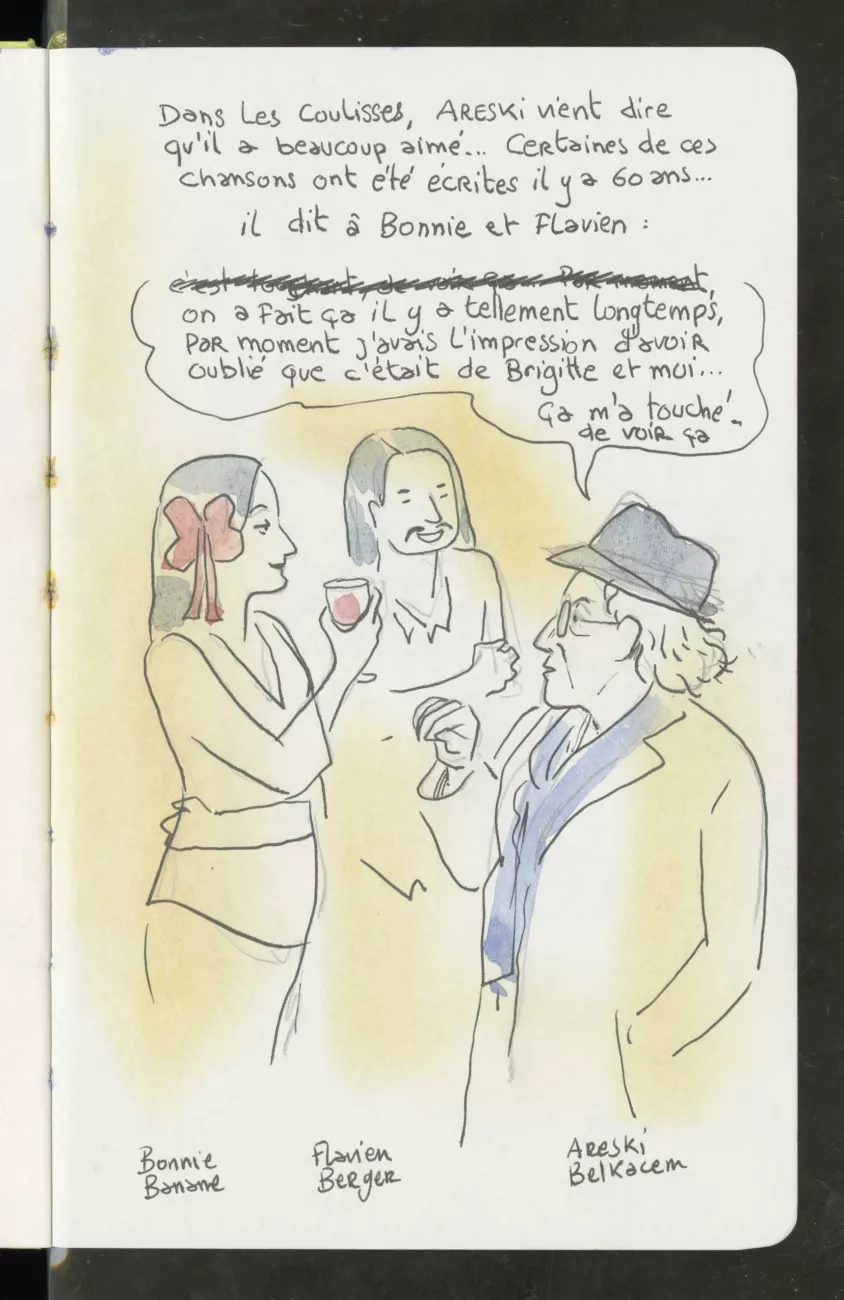 Dans les coulisses, Areski vient dire
qu'il a beaucoup aimé... Certaines de ces
chansons ont été écrites il y a 60 ans...
il dit à Bonnie et Flavien :
c'est touchant, de voir ça. Par moment,
on a fait ça il y a tellement longtemps,
par moment j'avais l'impression d'avoir
oublié que c'était de Brigitte et moi...
ça m'a touché
de voir ça
Bonnie
Banane
Flavien
Berger
Areski
Belkacem